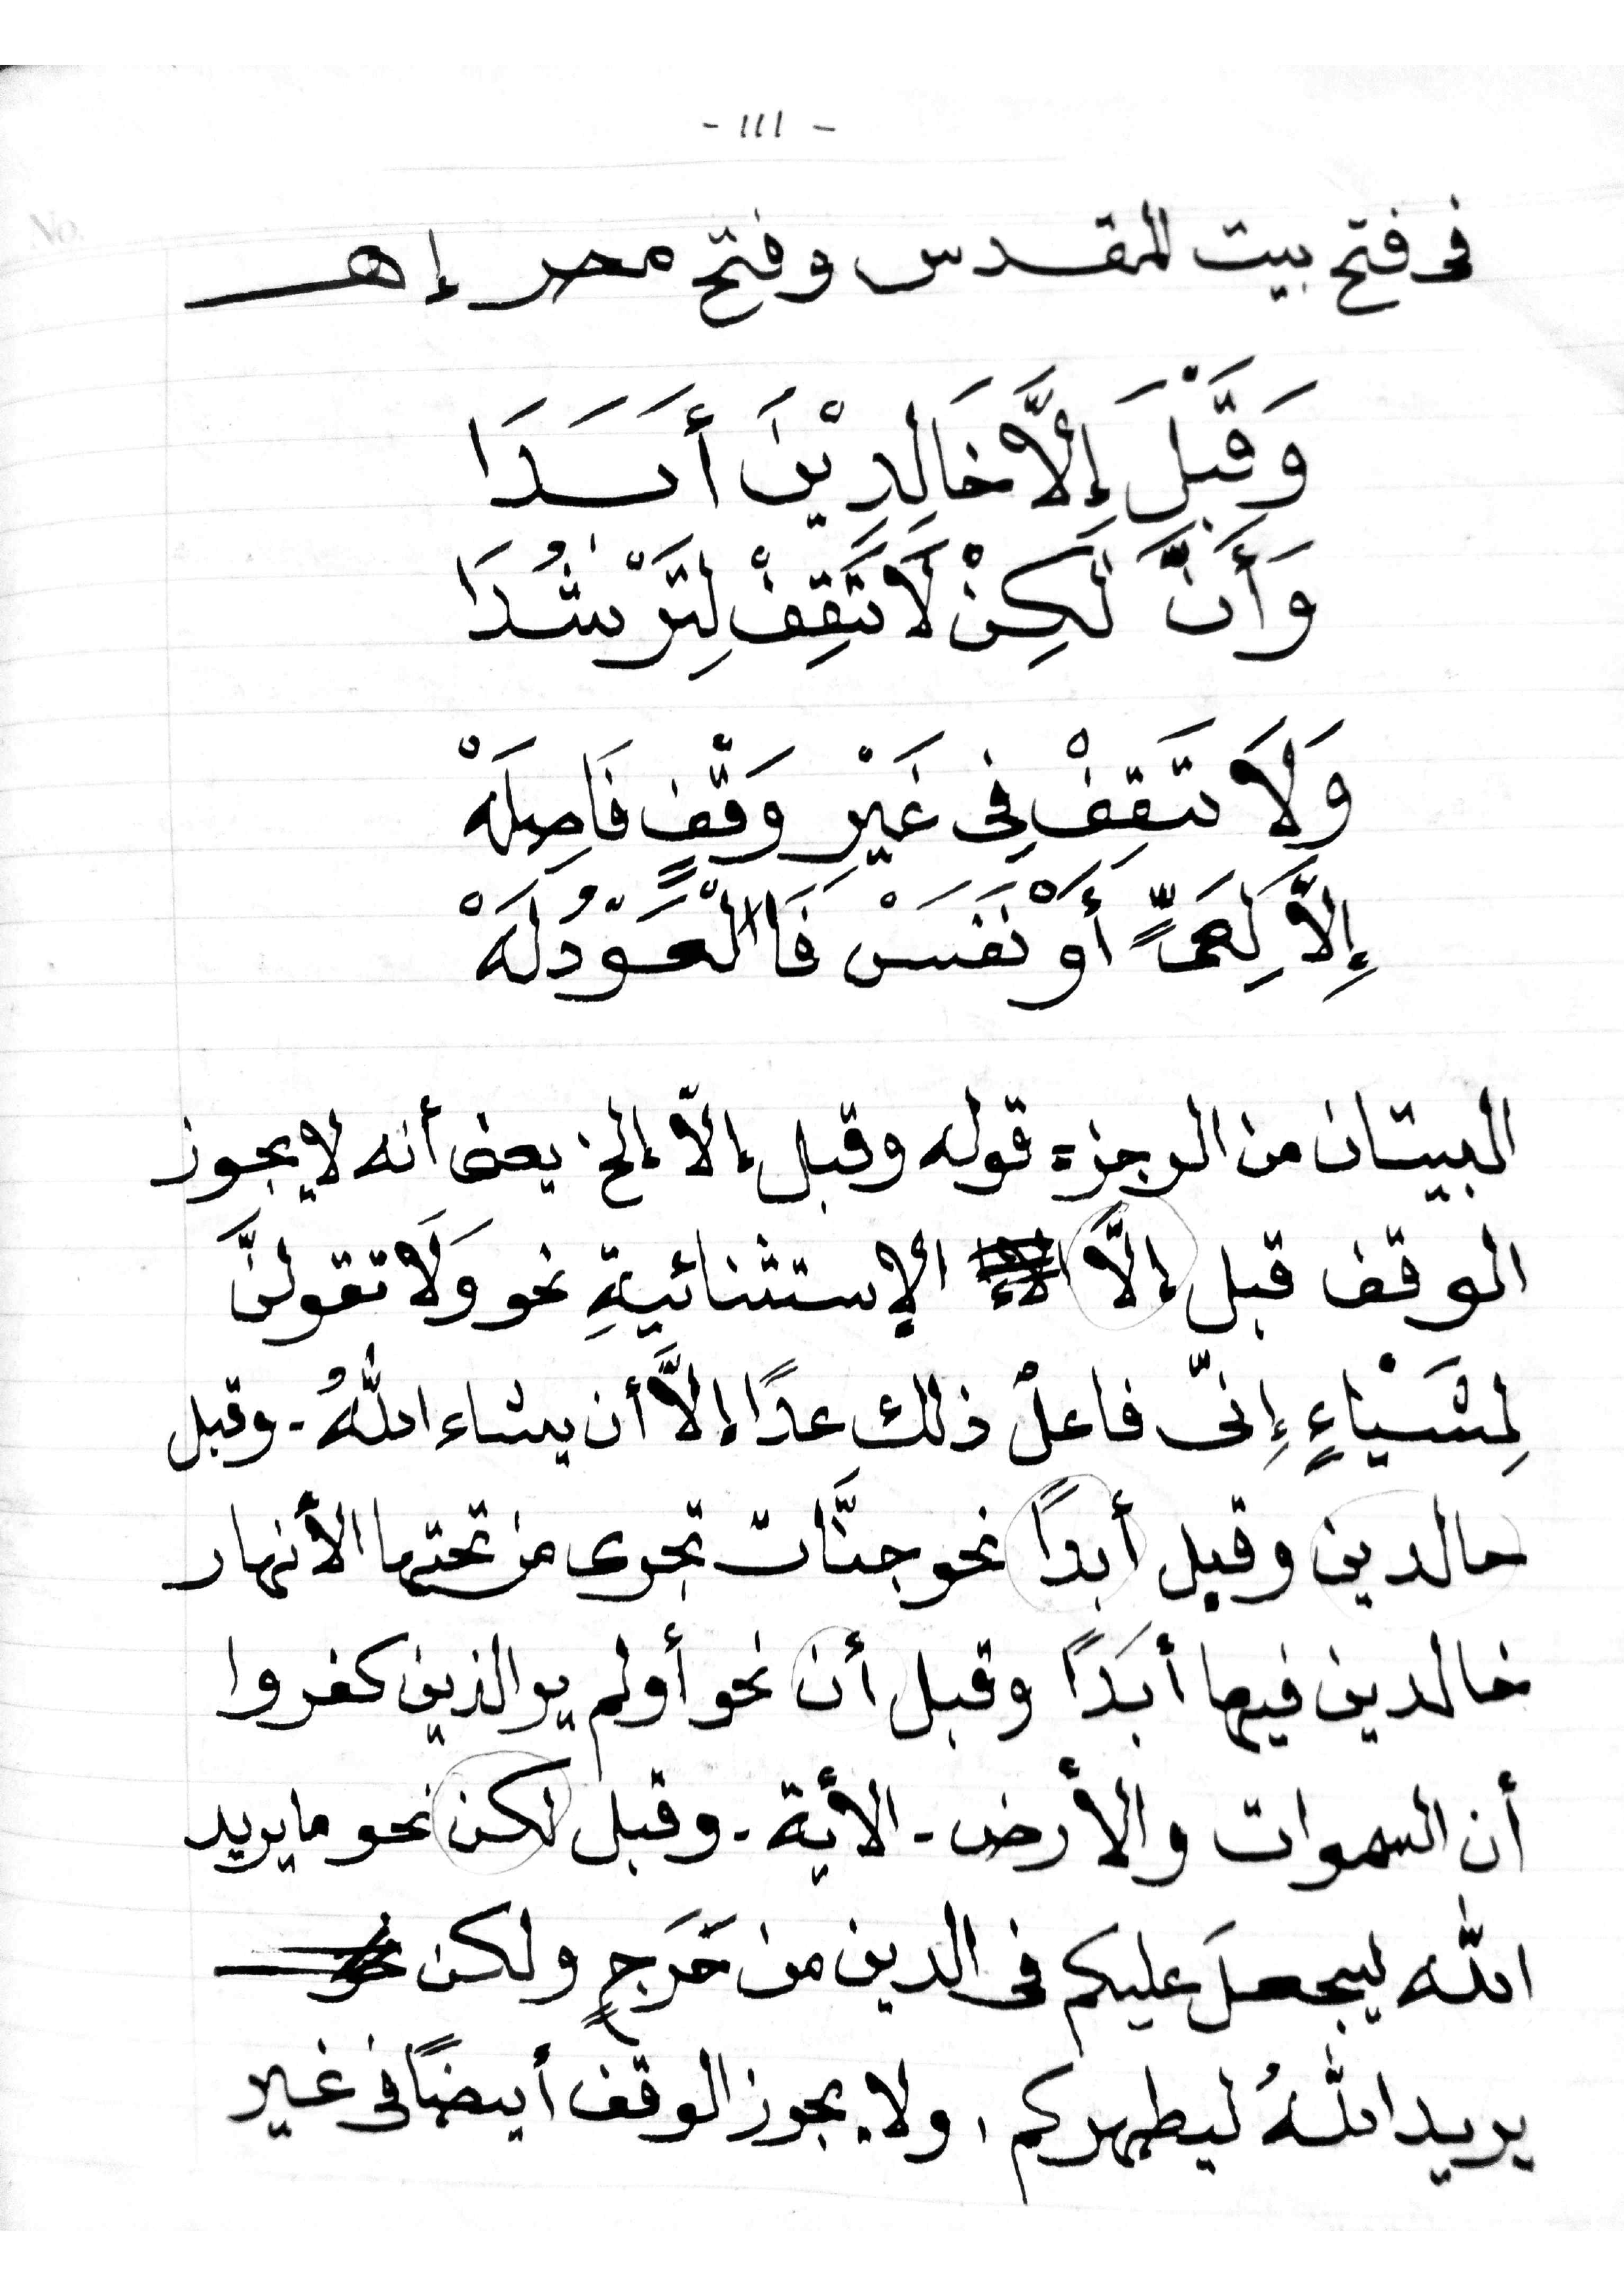 - ١١١ -
فى فتح بيت المقدس وفتح مصر إهـ
وَقَبْلَ إِلَّا خَالِدِيْنَ أَبَدَا
وَأَنَّ لَكِنْ لَا تَقِفْ لِتَرْشُدَا
وَلَا تَقِفْ فِى غَيْرِ وَقْفٍ فَاصِلَهْ
إِلَّا لِعَىٍّ أَوْ نَفَسْ فَالْعَوْدُ لَهْ
البيتان من الرجز = قوله وقبل إلّا إلخ يعنى أنه لا يجوز
الوقف قبل إلَّا الإستثنائيةِ نحو وَلَا تقولنَّ
لِشَيْاءٍ إِنّى فاعلٌ ذلك غدًا إلَّا أن يشاء اللّٰهُ - وقبل
خالدين وقبل أبدًا نحو جنَّات تجرى من تحتها الأنهار
خالدين فيها أبَدًا وقبل أن نحو أولم ير الذين كفروا
أن السموات والأرض - الأية - وقبل لكن نحو ما يريد
اللّٰه ليجعلَ عليكم فى الدين من حَرَجٍ ولكن
يريد اللّٰهُ ليطهركم ، ولا يجوز الوقف أيضًا فى غير